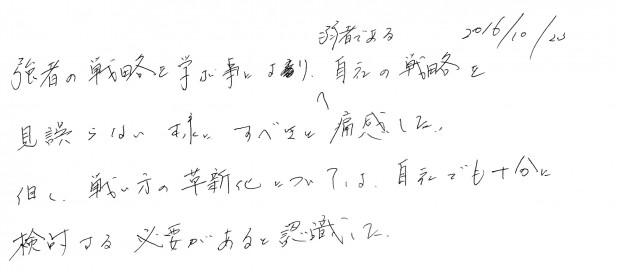 2016/10/23
弱者である
強者の戦略を学ぶ事により、自社の戦略を
見誤らない様にすべきと痛感した。
但し、戦い方の革新化については、自社でも十分に
検討する必要があると認識した。